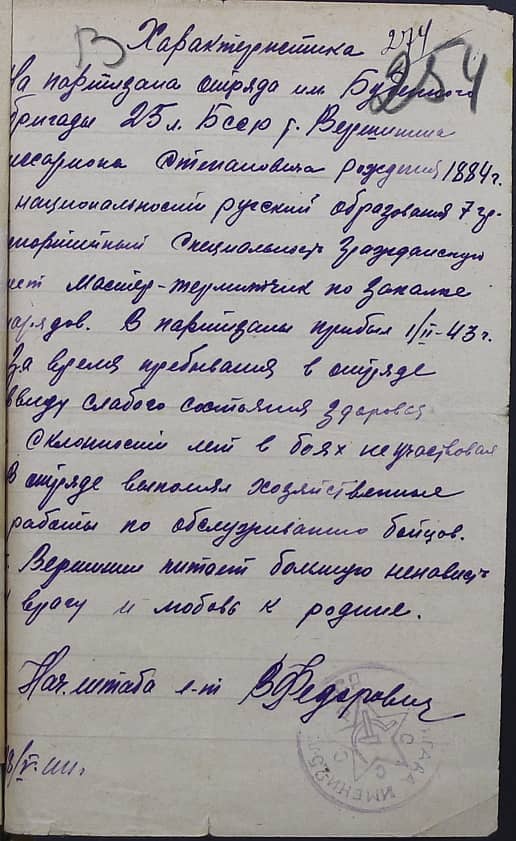 В
Характеристика 274
254
На партизана отряда им. Буденного
бригады 25 л. Бсср т. Вершинина
иссариона Степановича рождения 1884 г.
национальности русский образования 7 гр.
партийный специальность гражданскую
ет мастер-термитчик по закалке
арядов. В партизаны прибыл 1/II-43 г.
За время пребывания в отряде
ввиду слабого состояния здоровья
склонности лет в боях не участвовал
В отряде выполнял хозяйственные
работы по обслуживанию бойцов.
Вершинин питает большую ненависть
врагу и любовь к родине.
Нач. штаба л-т В Федорович
БРИГАДА ИМЕНИ 25
С С С